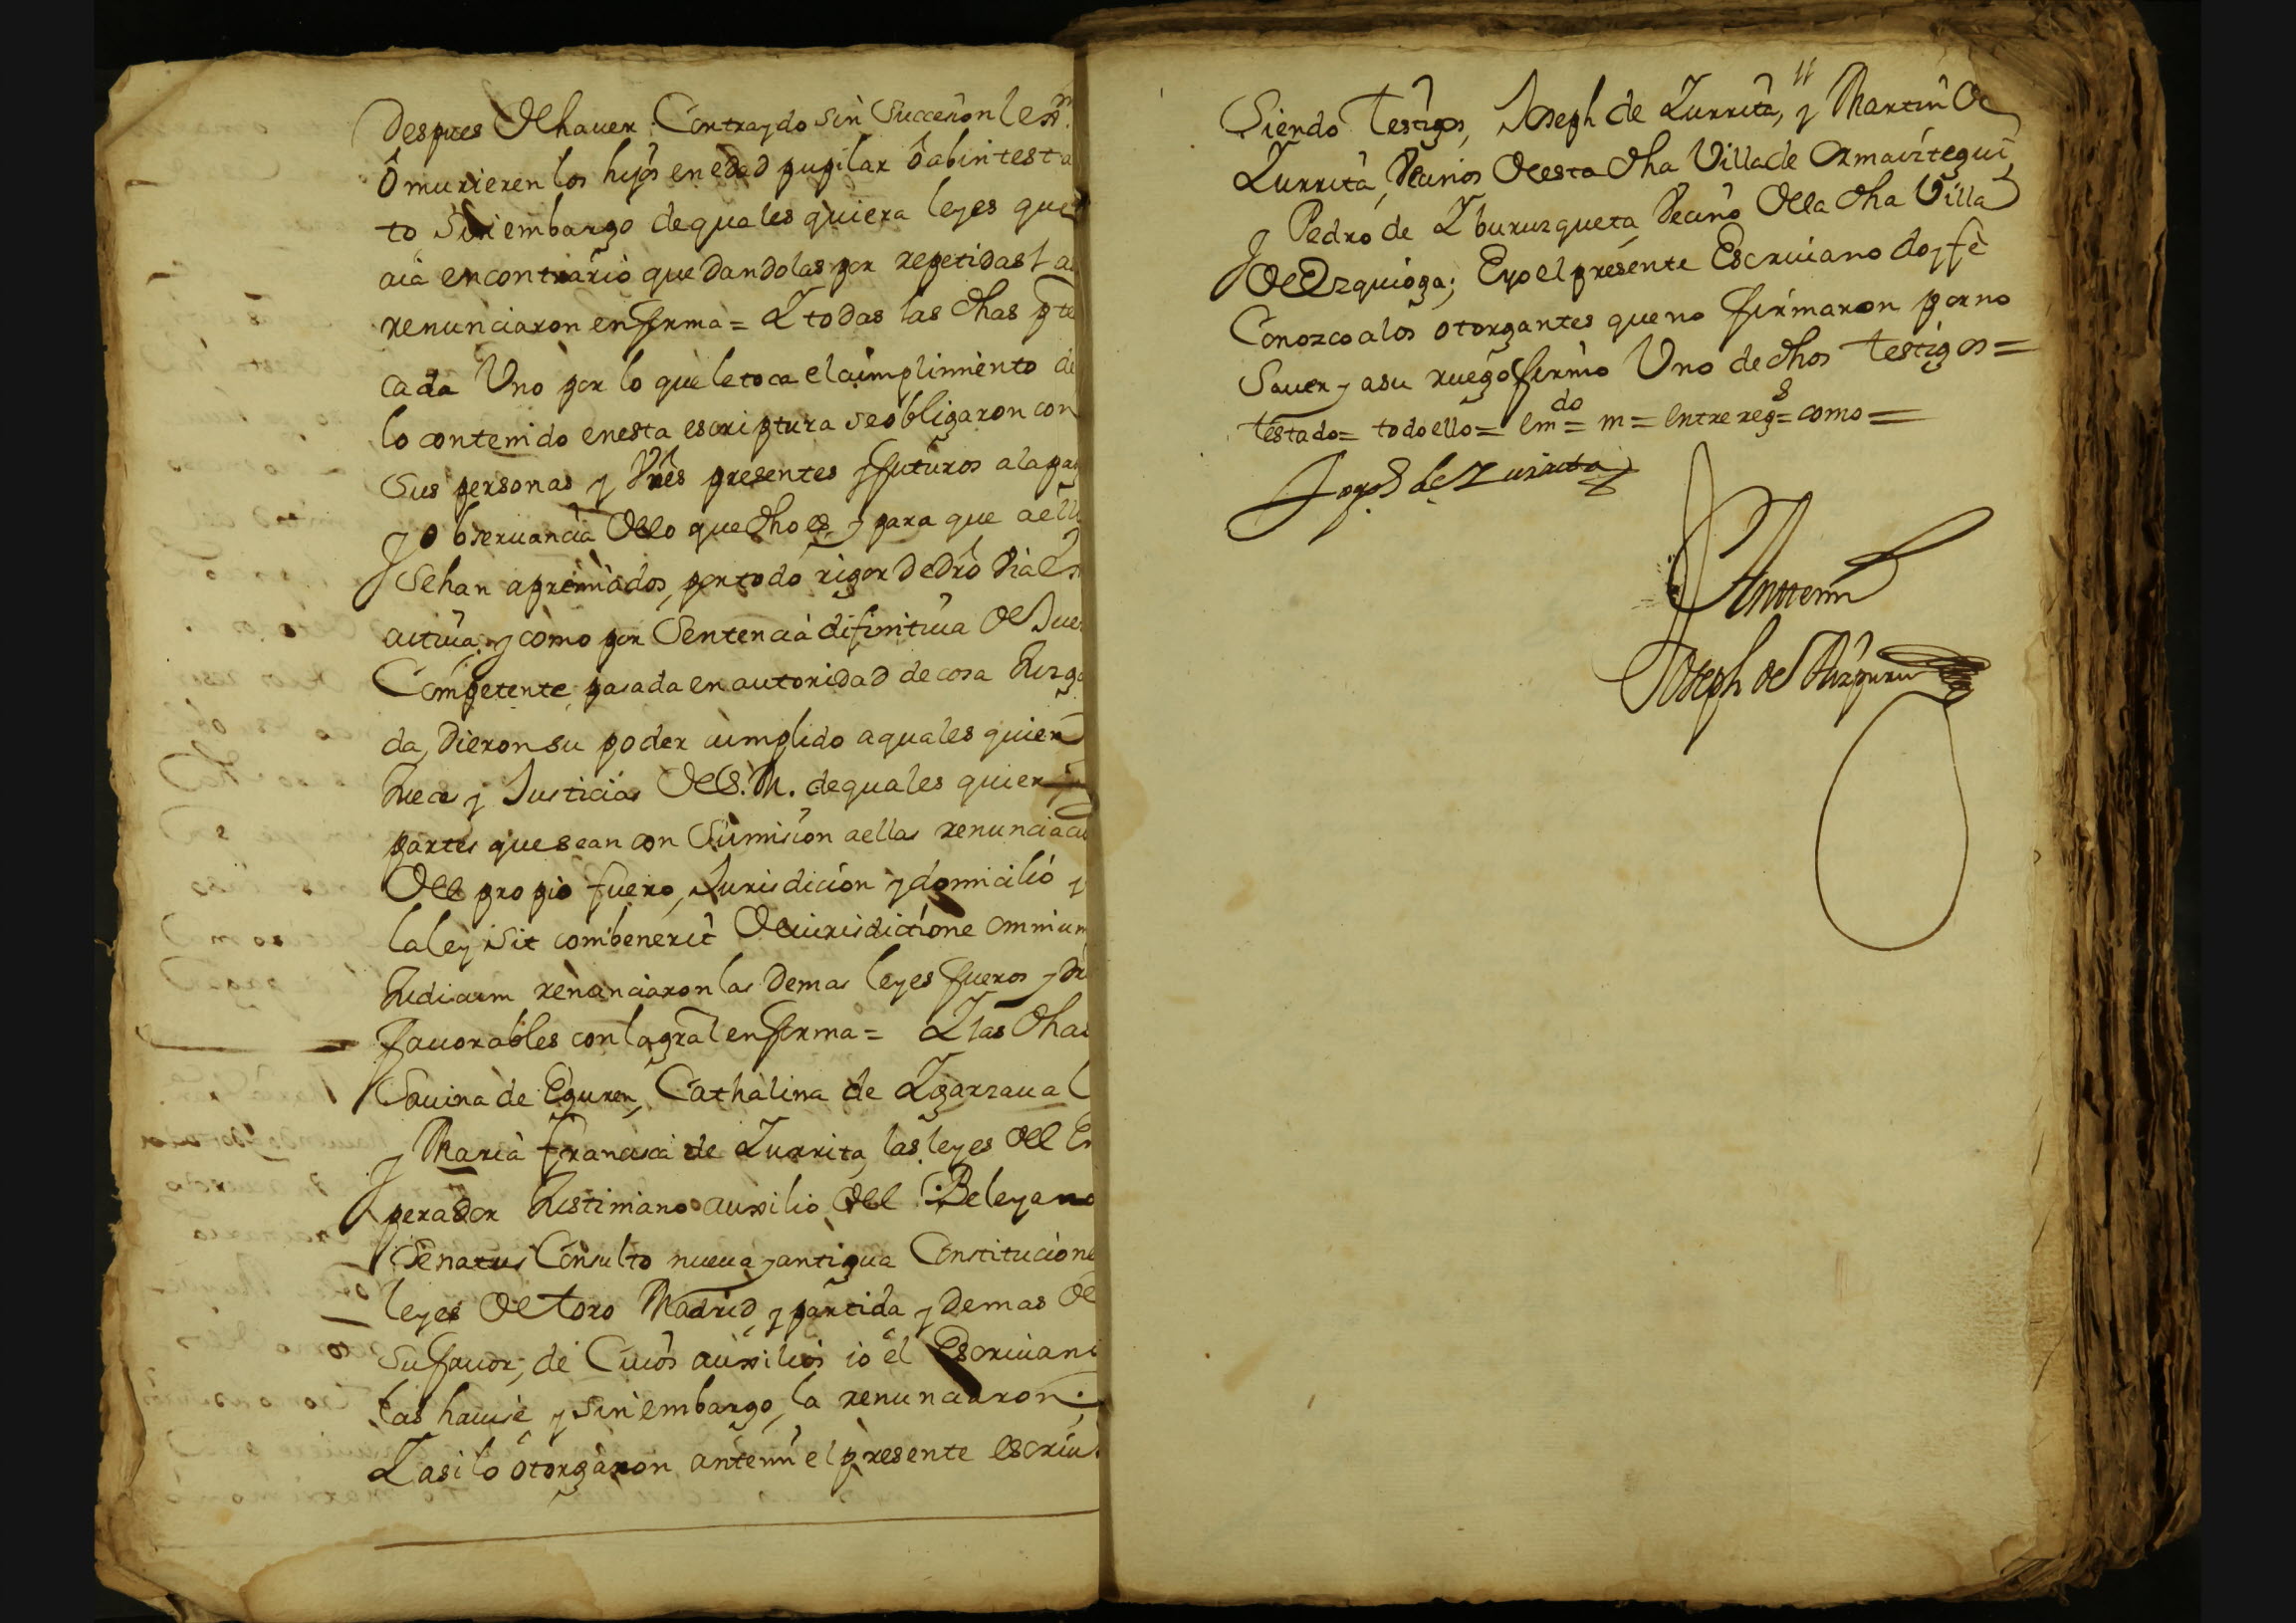 Despues de hauer Contraydo sin Succesion lexma
ô murieren los hijos en edad pupilar ô abintesta
to sin embargo de quales quiera leyes que
aia en contrario que dandolas por repetidas las
renunciaron en forma = Y todas las dhas ptes
cada Uno por lo que le toca el cumplimiento de
lo contenido en esta escriptura se obligaron con
Sus personas y Vnes presentes y futuros a la paga
y observancia de lo que dho es, y para que a ello
Se han apremiados, por todo rigor de dro via Ex
ecutiua, y como por Sentencia difinitiua de Juez
Competente pasada en autoridad de cosa Juzga
da, Dieron su poder cumplido a quales quier
Jueces y Justicias de S. M. de quales quier
partes que sean con Sumision a ellas renunciacion
del propio fuero, Jurisdicion y domicilio y
la ley sit combenerit de iurisdictione omnium
Judicum renunciaron las Demas leyes fueros y dros
fauorables con la gral en forma = Y las dhas
Sauina de Eguren, Cathalina de Ygarzaual
y Maria Francisca de Zurrita, las leyes del Em
perador Justiniano auxilio del Beleyano
Senatus Consulto nueua y antigua Constitucione
leyes de toro Madrid y partida y Demas de
Su fauor, de Cuios auxilios io el Escriuano
las hauise y sin embargo, la renunciaron,
Y asi lo otorgaron antemi el presente escriu
11
Siendo Testigos, Joseph de Zurrita, y Martin de
Zurrita, Vecinos de esta dha Villa de Ormaiztegui
y Pedro de Yburuzqueta Vecino de la dha Villa
de Ezquioga; E yo el presente Escriuano doy fê
Conozco a los otorgantes que no firmaron por no
Sauer y a su ruego firmo Uno de dhos Testigos =
testado = todo ello = em do = m = entre reg s = como =
Joseph de Zurrita
Antemi
Joseph de Aizpuru